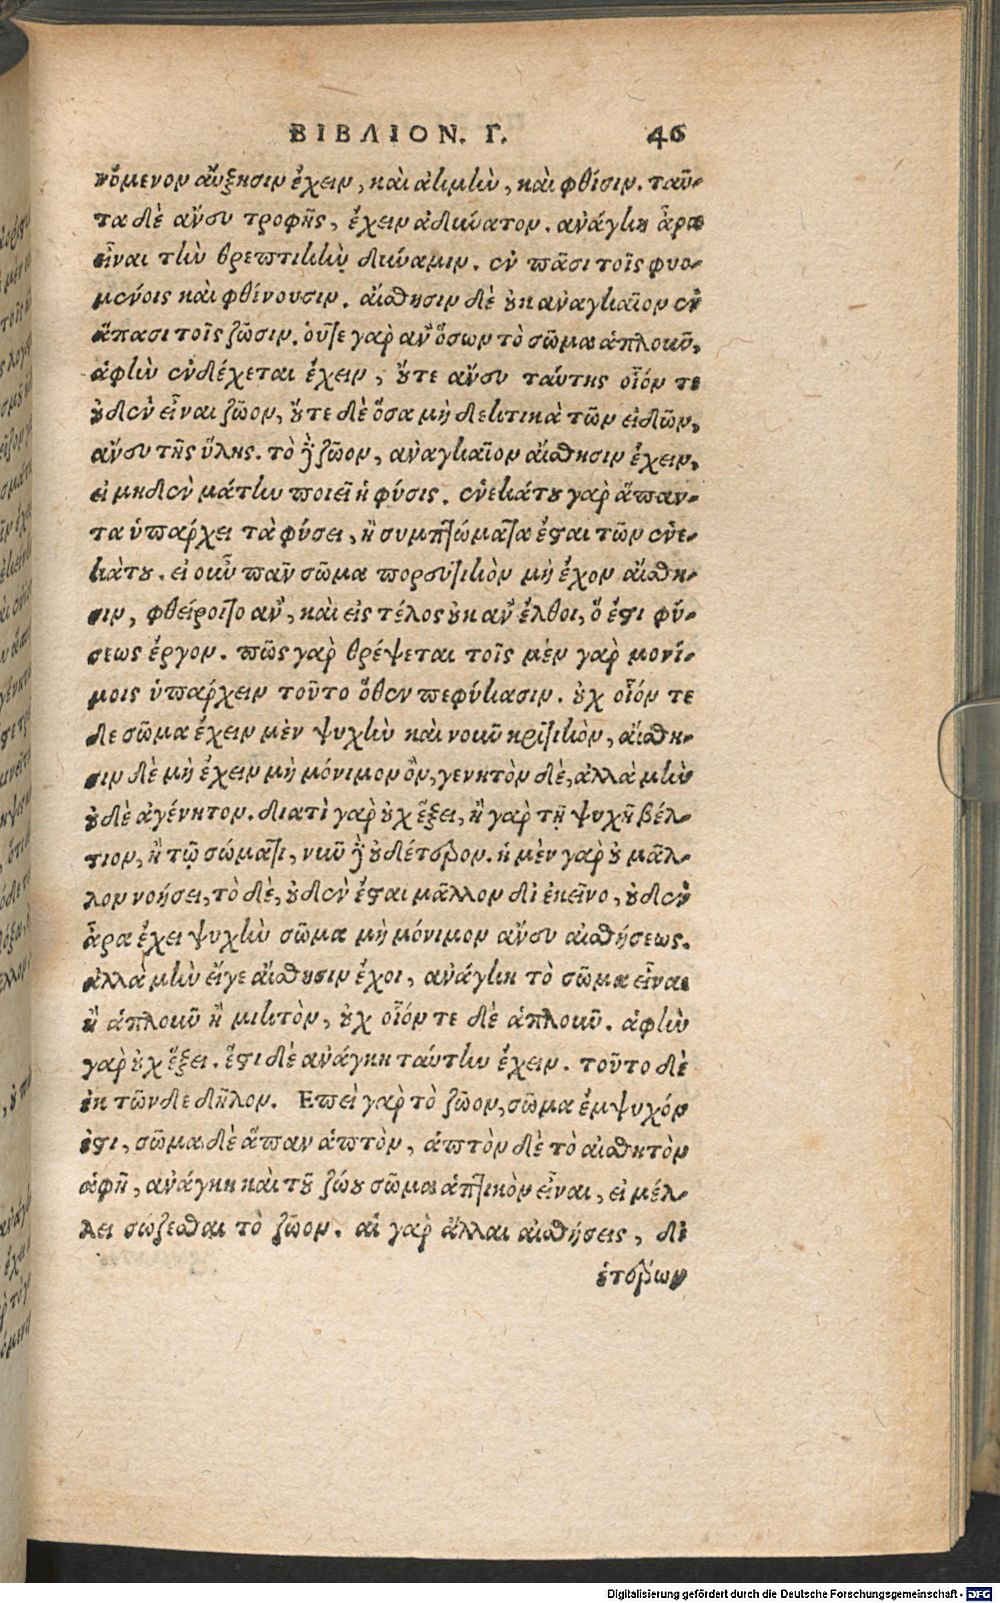 ΒΙΒΛΙΟΝ. Γ. 46
νόμενον αὔξησιν ἔχειν, καὶ ἀκμὴν, καὶ φθίσιν. ταῦ-
τα δὲ ἄνευ τροφῆς, ἔχειν ἀδύνατον. ἀνάγκη ἄρα
εἶναι τὴν θρεπτικὴν δύναμιν. ἐν πᾶσι τοῖς φυο-
μένοις καὶ φθίνουσιν. αἴσθησιν δὲ οὐκ ἀναγκαῖον ἐν
ἅπασι τοῖς ζῶσιν. οὔτε γὰρ ἂν ὅσων τὸ σῶμα ἁπλοῦν,
ἁφὴν ἐνδέχεται ἔχειν, οὔτε ἄνευ ταύτης οἷόν τε
οὐδὲν εἶναι ζῶον, οὔτε δὲ ὅσα μὴ δεκτικὰ τῶν εἰδῶν,
ἄνευ τῆς ὕλης. τὸ δὲ ζῶον, ἀναγκαῖον αἴσθησιν ἔχειν,
εἰ μηδὲν μάτην ποιεῖ ἡ φύσις. ἕνεκάτου γὰρ ἅπαν-
τα ὑπάρχει τὰ φύσει, ἢ συμπτώματα ἔσται τῶν ἕνε-
κάτου. εἰ οὖν πᾶν σῶμα πορευτικὸν μὴ ἔχον αἴσθη-
σιν, φθείροιτο ἂν, καὶ εἰς τέλος οὐκ ἂν ἔλθοι, ὅ ἐστι φύ-
σεως ἔργον. πῶς γὰρ θρέψεται τοῖς μὲν γὰρ μονί-
μοις ὑπάρχειν τοῦτο ὅθεν πεφύκασιν. οὐχ οἷόν τε
δε σῶμα ἔχειν μὲν ψυχὴν καὶ νοῦν κριτικὸν, αἴσθη-
σιν δὲ μὴ ἔχειν μὴ μόνιμον ὂν, γενητὸν δὲ, ἀλλὰ μὴν
οὐδὲ ἀγένητον. διατὶ γὰρ οὐχ ἕξει, ἢ γὰρ τῇ ψυχῇ βέλ-
τιον, ἢ τῷ σώματι, νῦν δὲ οὐδέτερον. ἡ μὲν γὰρ οὐ μᾶλ-
λον νοήσει, τὸ δὲ, οὐδὲν ἔσται μᾶλλον δι ἐκεῖνο, οὐδὲν
ἄρα ἔχει ψυχὴν σῶμα μὴ μόνιμον ἄνευ αἰσθήσεως.
ἀλλὰ μὴν εἴγε αἴσθησιν ἔχοι, ἀνάγκη τὸ σῶμα εἶναι
ἢ ἁπλοῦν ἢ μικτὸν, οὐχ οἷόν τε δὲ ἁπλοῦν. ἁφὴν
γὰρ οὐχ ἕξει. ἔστι δὲ ἀνάγκη ταύτην ἔχειν. τοῦτο δὲ
ἐκ τῶνδε δῆλον. Επεὶ γὰρ τὸ ζῶον, σῶμα ἐμψυχόν
ἐστι, σῶμα δὲ ἅπαν ἁπτὸν, ἁπτὸν δὲ τὸ αἰσθητὸν
ἁφῇ, ἀνάγκη καὶ τοῦ ζώου σῶμα ἁπτικὸν εἶναι, εἰ μέλ-
λει σώζεσθαι τὸ ζῶον. αἱ γὰρ ἄλλαι αἰσθήσεις, δι
ἑτέρων
Digitalisierung gefördert durch die Deutsche Forschungsgemeinschaft - DFG